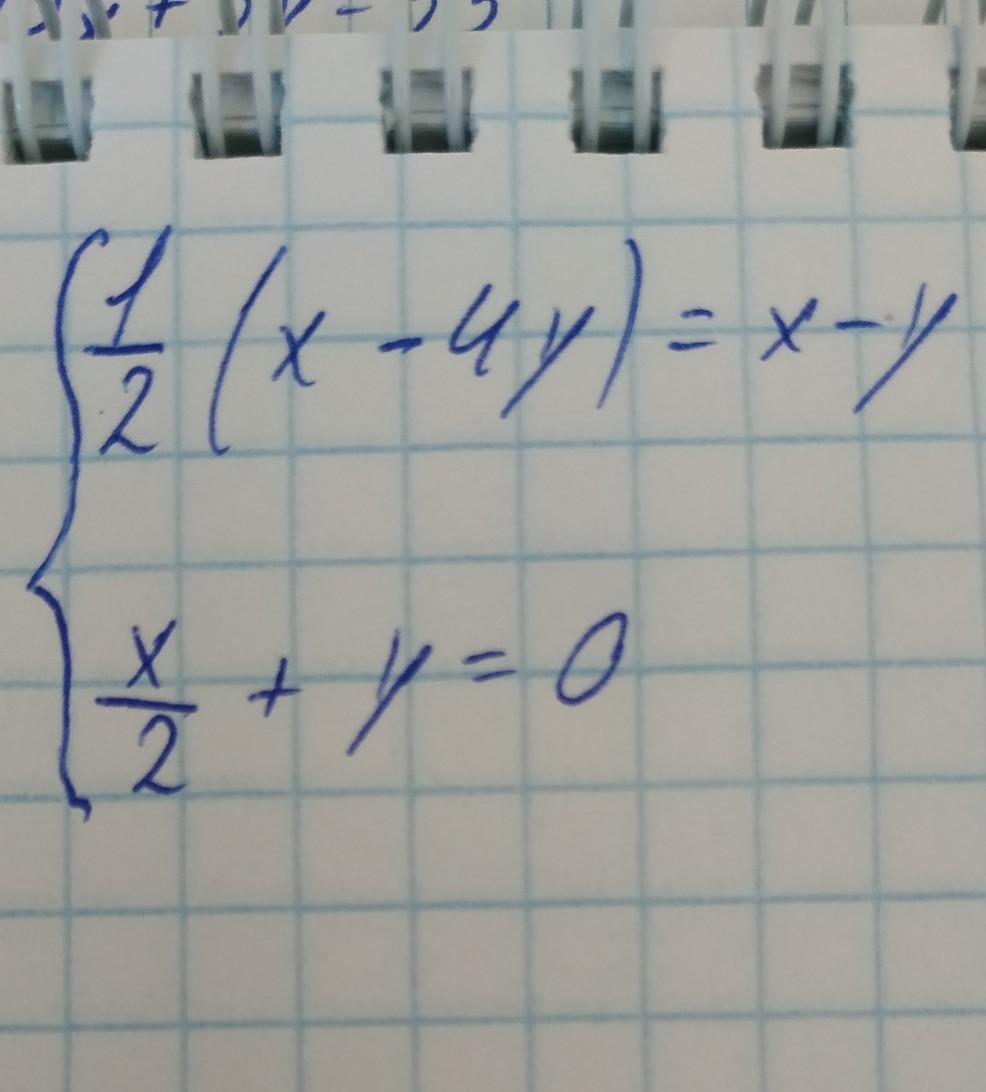 1/2 (x - 4y) = x - y
x/2 + y = 0